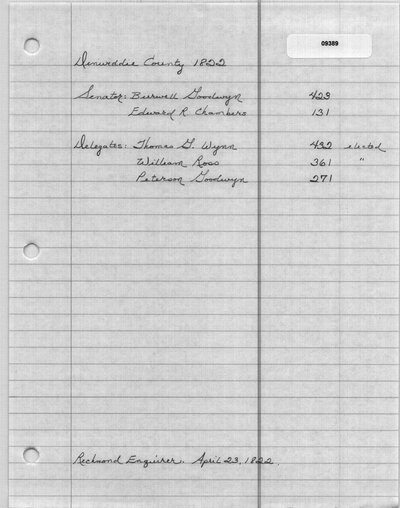 09389
Dinwiddie County 1822
Senator: Burwell Goodwyn 423
Edward R. Chambers 131
Delegates: Thomas G. Wynn 432 elected
William Ross 361 "
Peterson Goodwyn 271
Richmond Enquirer. April 23, 1822.